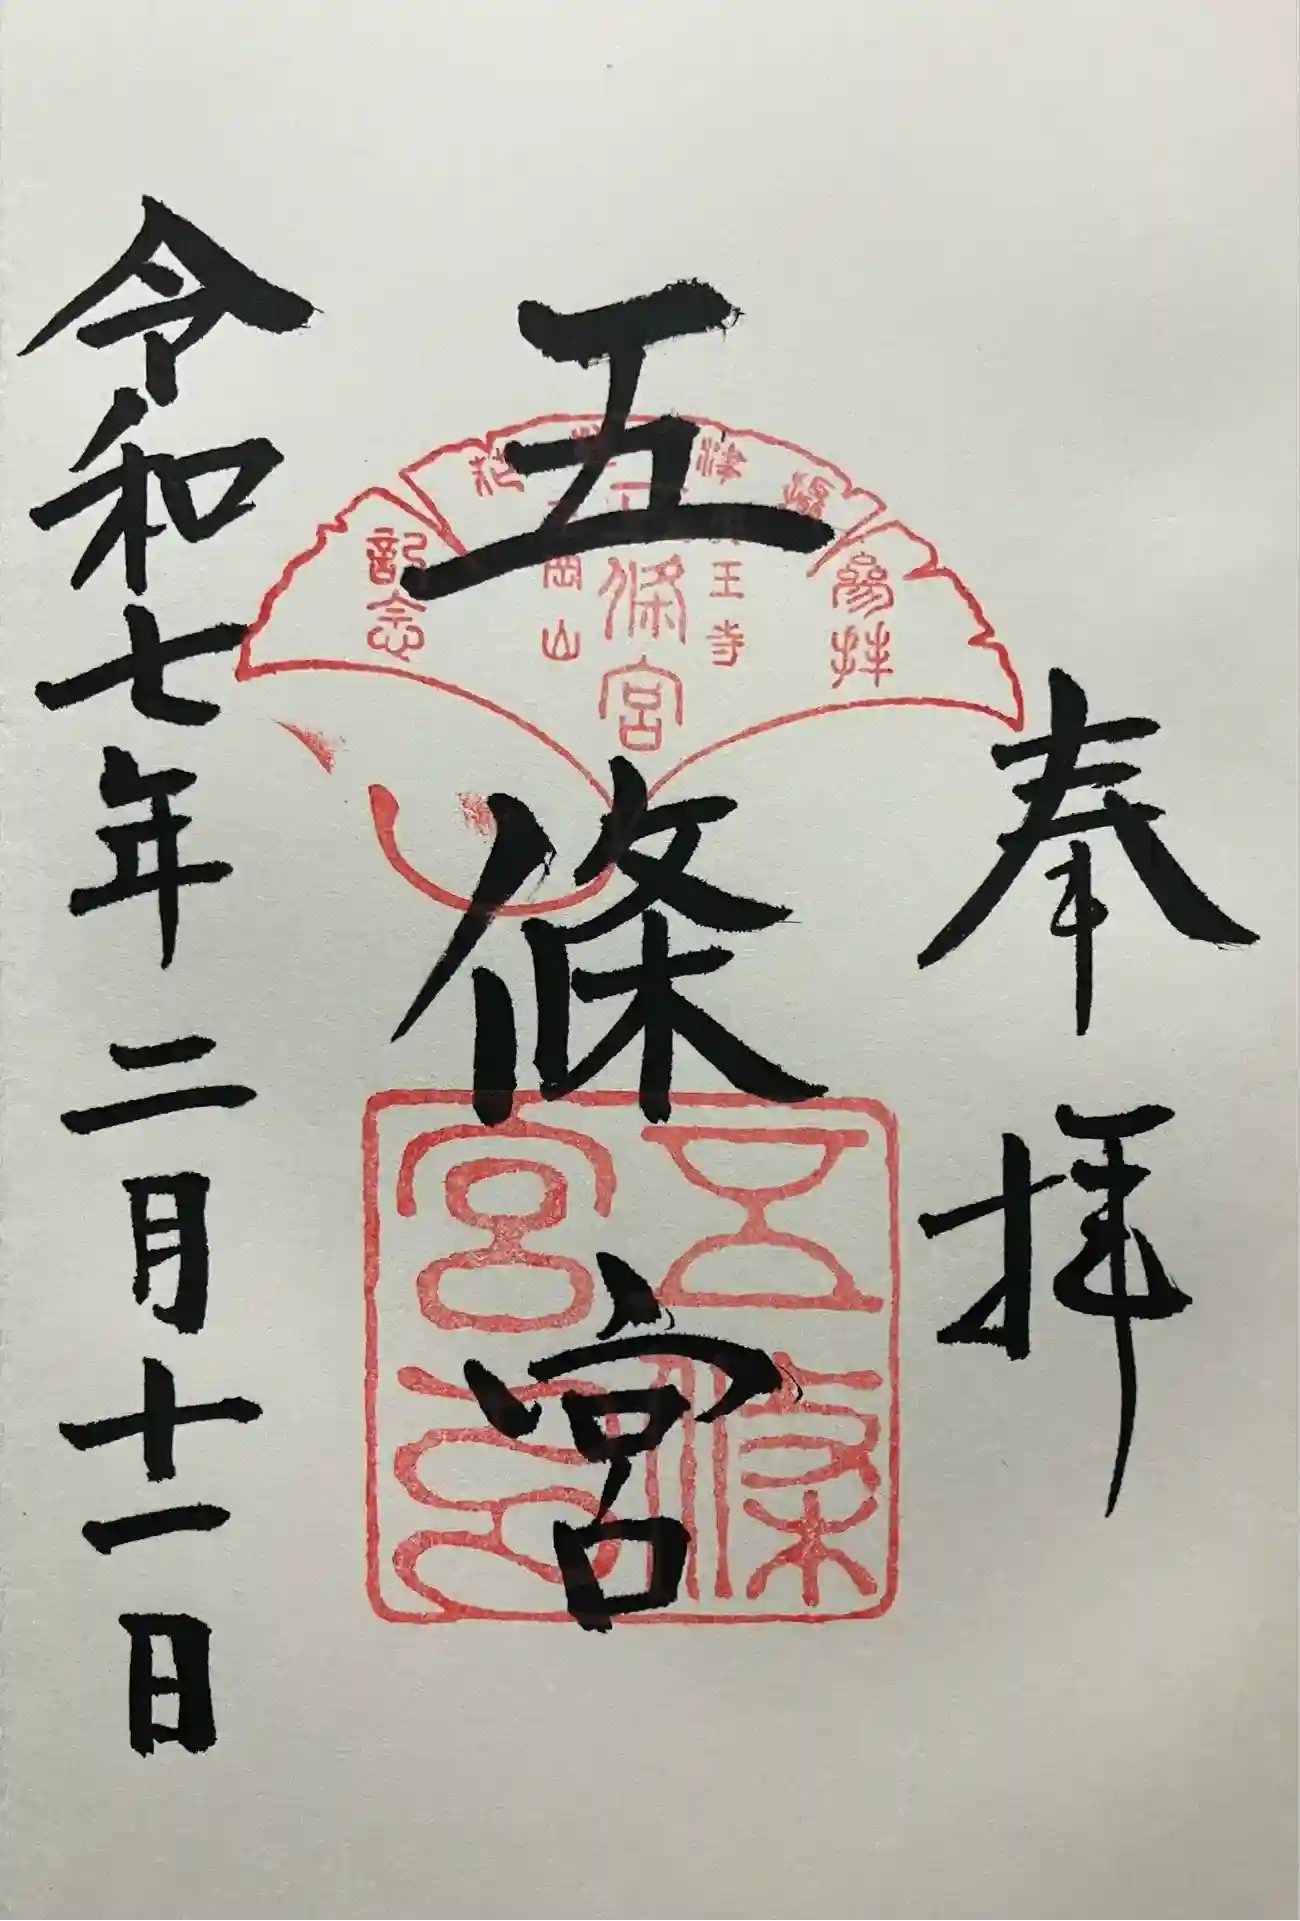 奉拝
五條宮
令和七年二月十一日
參拝
攝津
王寺
五條宮
岡山
記念
五條宮印